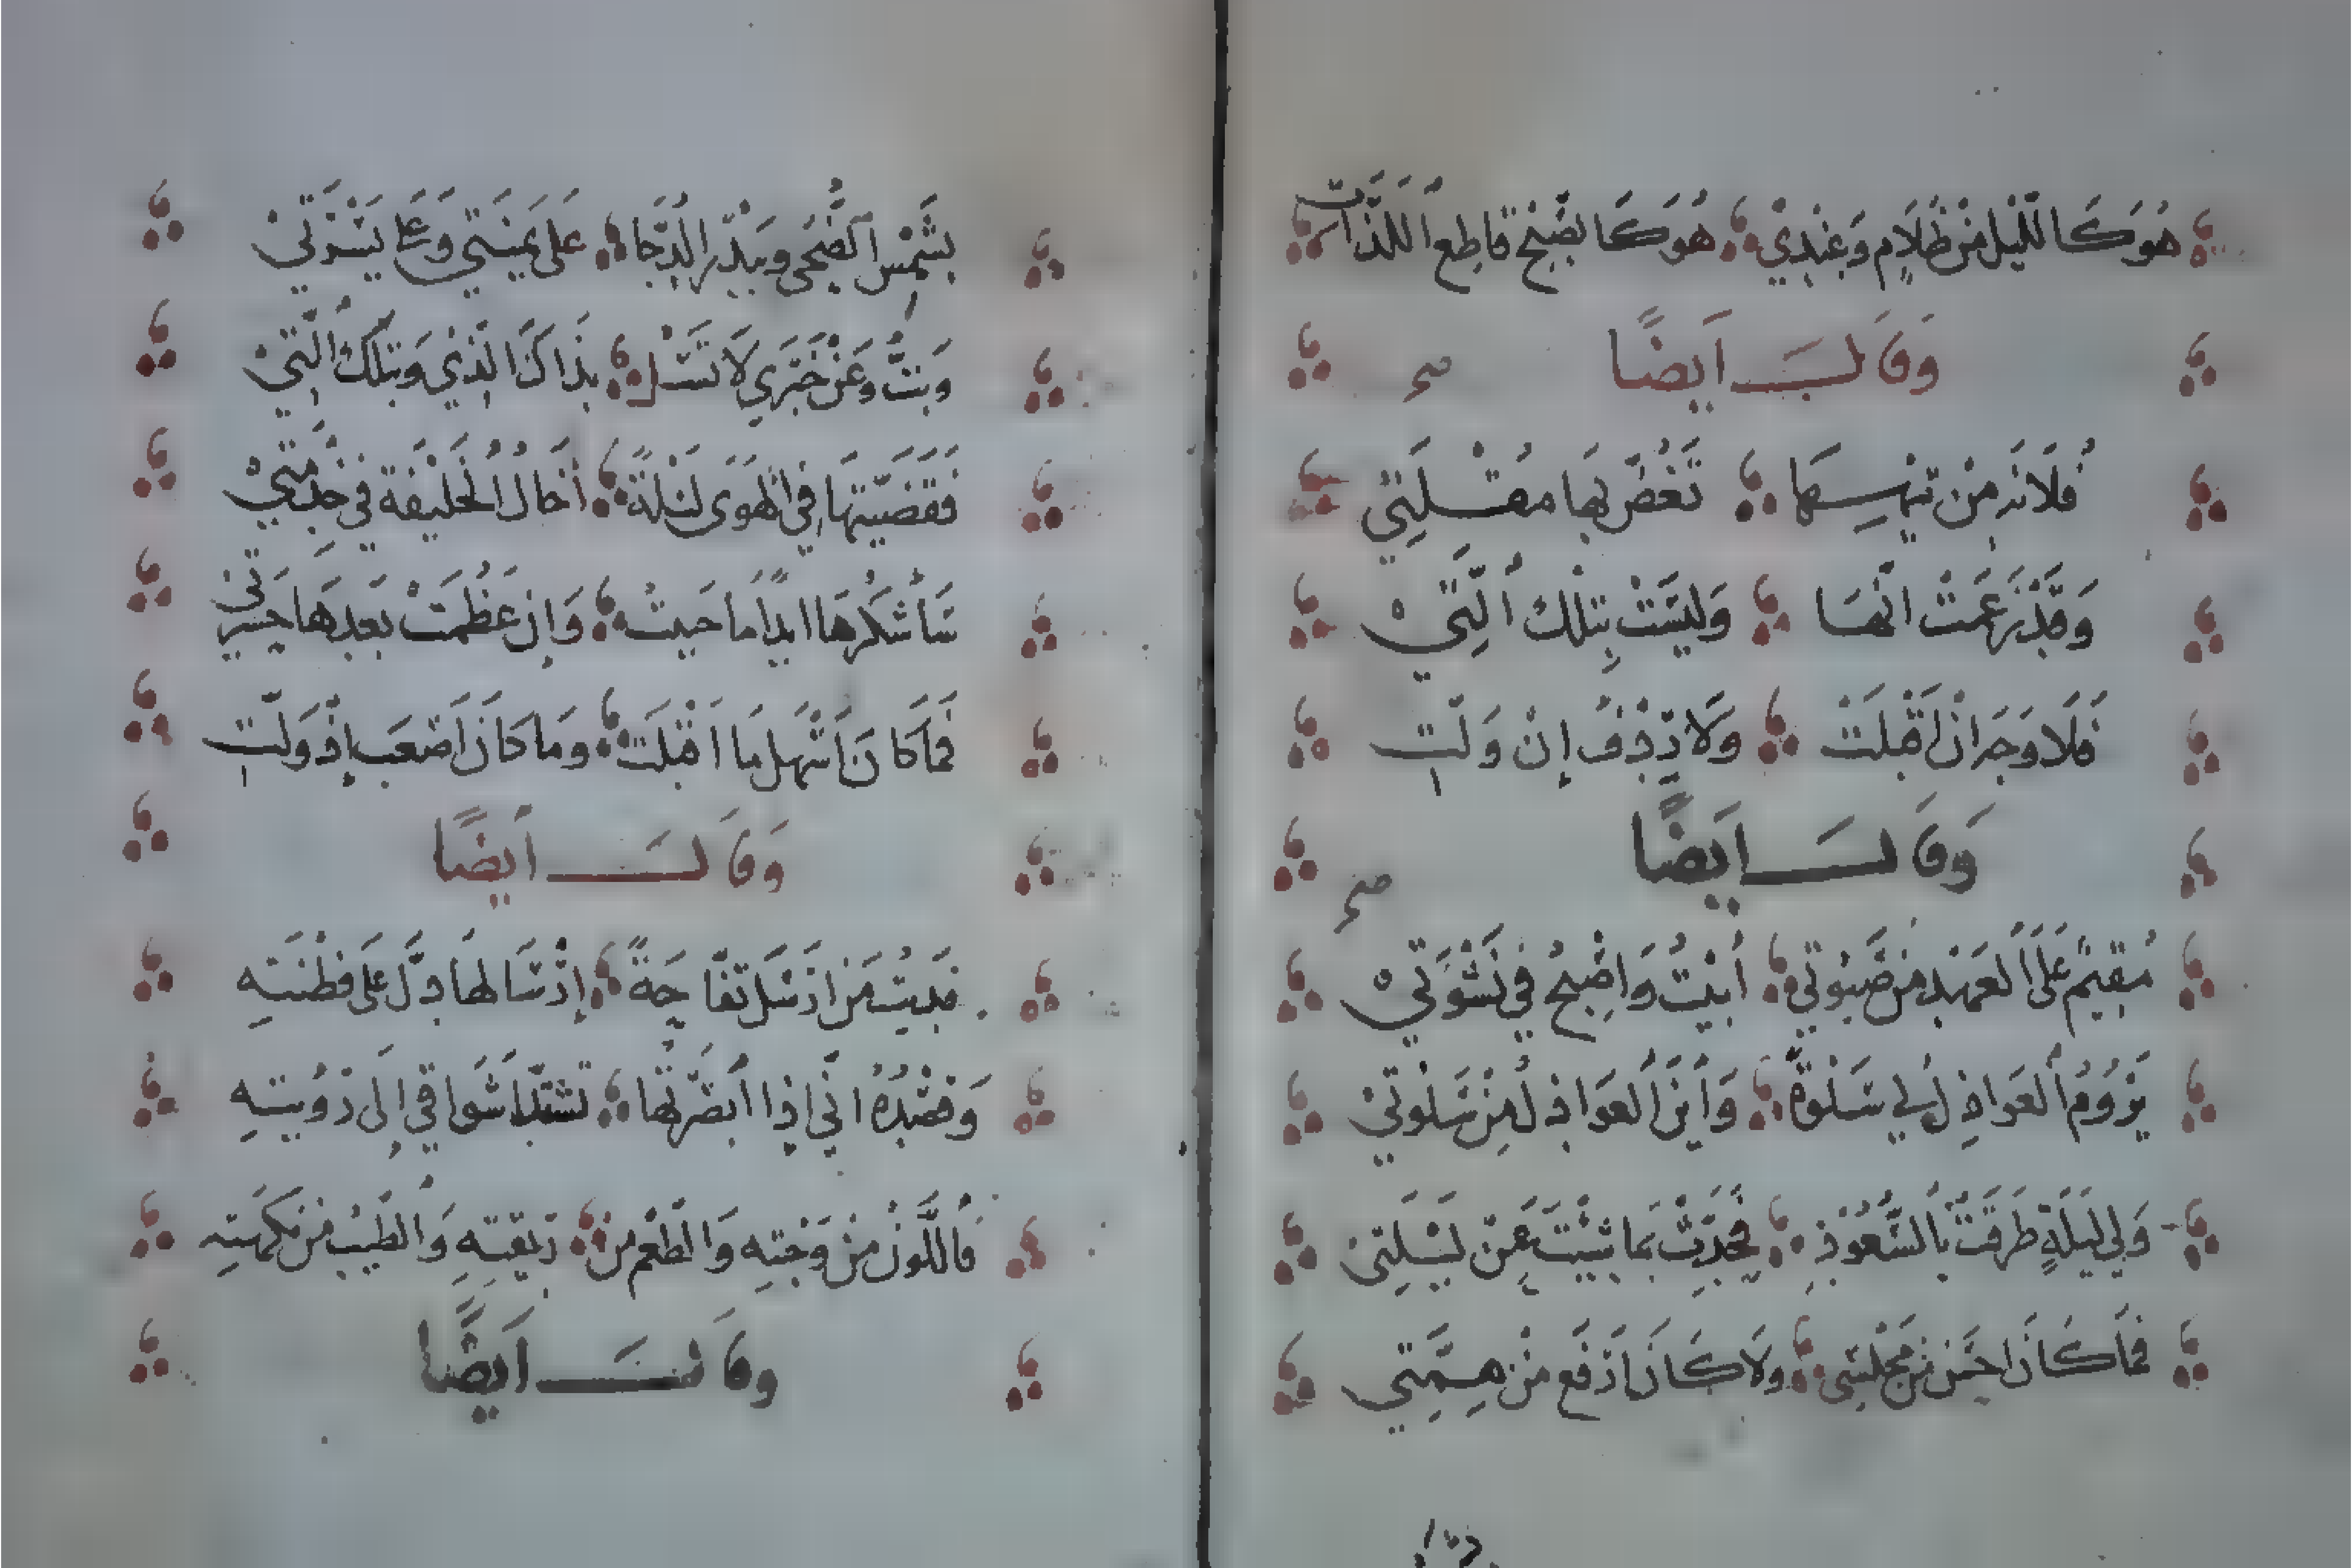 هُوَ كَاللَّيْلِ مِنْ ظَلَامٍ وَعِنْدِي هُوَ كَالصُّبْحِ قَاطِعُ اللَّذَّاتِ
وَقَالَ أَيْضًا صح
فُلَانَة مِنْ تِيْهِهَا تَغُضُّ بِهَا مُقْلَتِيْ
وَقَدْ زَعَمَتْ أَنَّهَا وَلَيْسَتْ بِتِلْكَ الَّتِيْ
فَلَا وَجْهَ إِنْ أَقْبَلَتْ وَلَا رِدْفُ إِنْ وَلَّتِ
وَقَالَ أَيْضًا صح
مُقِيْمٌ عَلَى الْعَهْدِ مِنْ صَبْوَتِي أَبِيْتُ وَأُصْبِحُ فِي نَشْوَتِيْ
يَرُوْمُ الْعَوَاذِلُ لِي سَلْوَةً وَأَيْنَ الْعَوَاذِلُ مِنْ سَلْوَتِيْ
وَلِي لَيْلَةٍ طَرَقَتْ بِالسُّعُوْدِ فَحَدِّثْ بِمَا شِيْتَ عَنْ لَيْلَتِيْ
فَمَا كَانَ أَحْسَنَ مِنْ مَجْلِسِي وَلَا كَانَ أَرْفَعَ مِنْ هِمَّتِي
دبت
بِشَمْسِ الضُّحَى وَبَدْرِ الدُّجَا عَلَى يَمِيْنَتِي وَعَلَى يَسْرَتِيْ
وَبِتُّ وَعَنْ خَبَرِي لَا تَسَلْ بِذَاكَ الَّذِيْ وَبِتِلْكَ الَّتِيْ
فَقَضَّيْتُهَا فِي الْهَوَى لَيْلَةً أَخَالُ الْخَلِيْفَةَ فِي خِدْمَتِيْ
سَأَشْكُرُهَا أَبَدًا مَا حَيِيْتُ وَإِنْ عَظُمَتْ بَعْدَهَا حَسْرَتِيْ
فَمَا كَانَ أَسْهَلَ مَا أَقْبَلَتْ وَمَا كَانَ أَصْعَبَ إِذْ وَلَّتِ
وَقَالَ أَيْضًا
فَدَيْتُ مَنْ أَرْسَلَ تُفَّاحَةً إِرْسَالُهَا دَلَّ عَلَى فِطْنَتِهِ
وَقَصْدُهُ أَنِّي إِذَا أَبْصَرْتُهَا تَشْتَدُّ أَشْوَاقِي إِلَى رُؤْيَتِهِ
فَاللَّوْنُ مِنْ وَجْنَتِهِ وَالطَّعْمُ مِنْ رِيْقَتِهِ وَالطِّيْبُ مِنْ نَكْهَتِهِ
وَقَالَ أَيْضًا